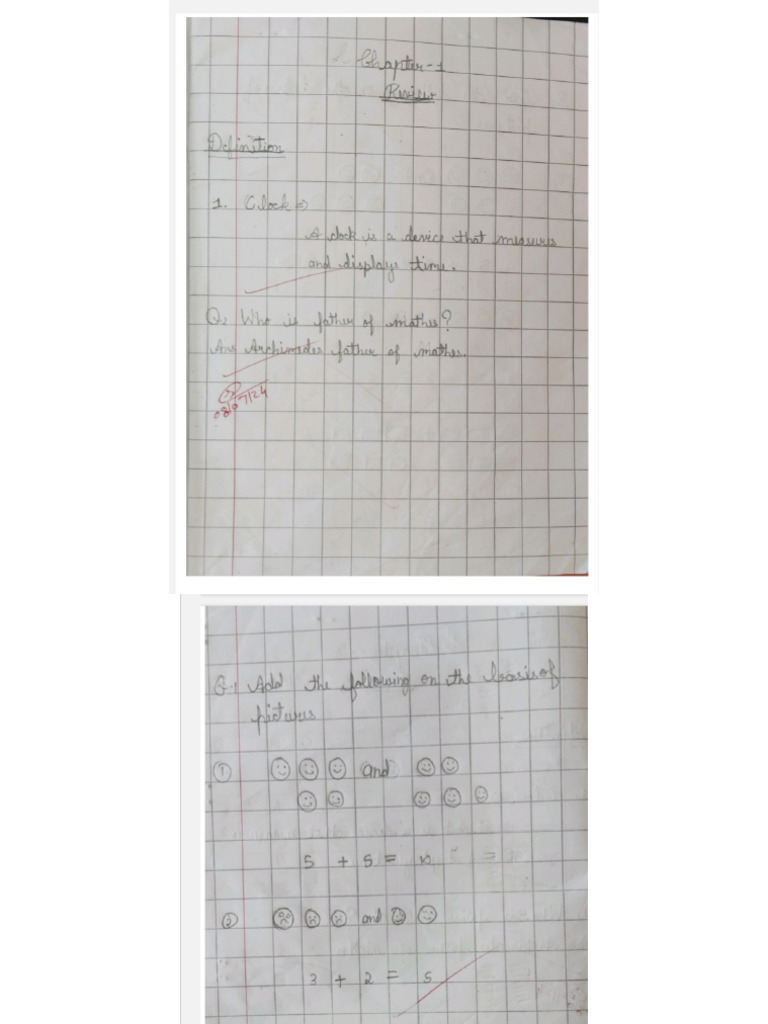 Chapter-1
Review
Definition
1. Clock ⇒
A clock is a device that measures
and displays time.
Q. Who is father of mathes?
Ans Archimates father of mathes.
03/07/24
Q.1 Add the following on the basis of
pictures
① and
5 + 5 = 10
② and
3 + 2 = 5